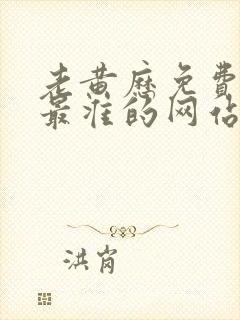 老黄历免费
最准的网站
洪肖